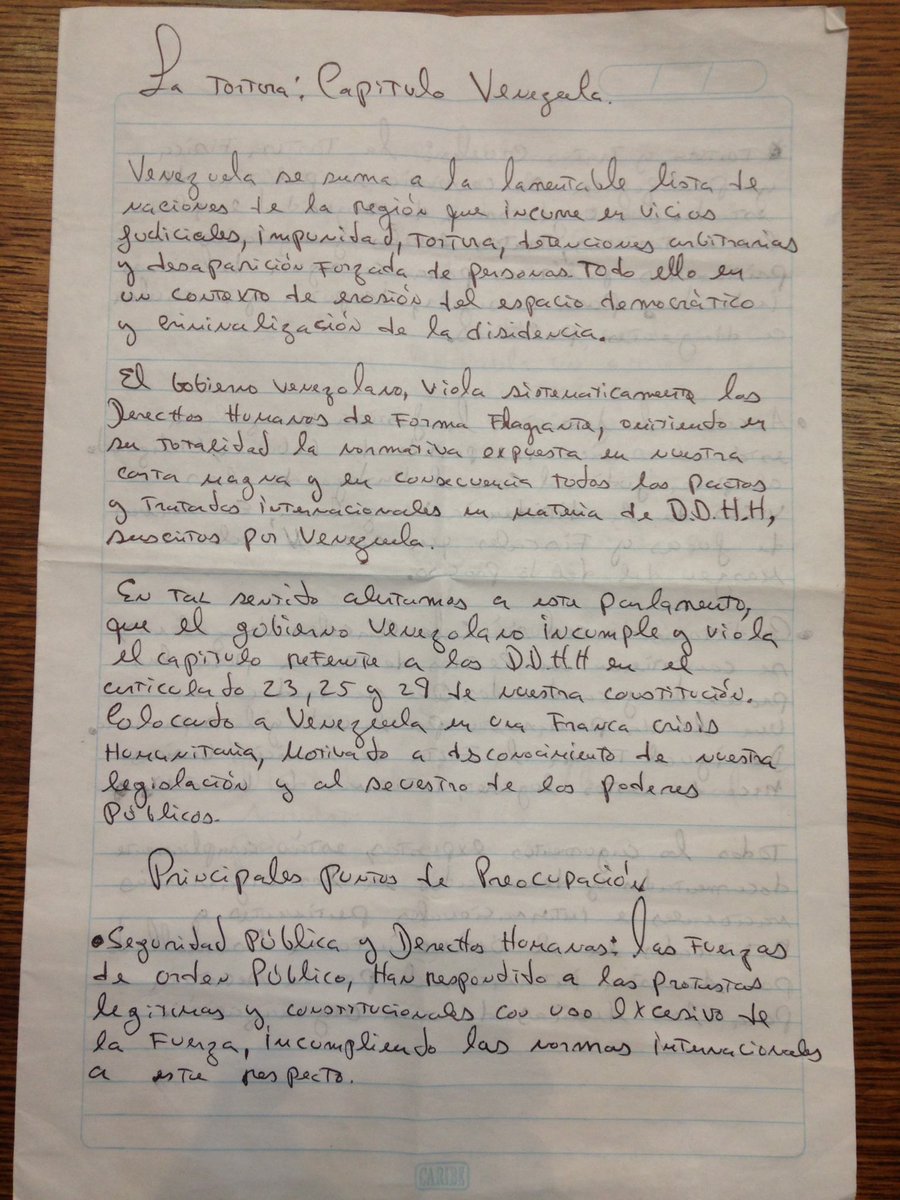 La Tortura: Capitulo Venezuela.
Venezuela se suma a la lamentable lista de
naciones de la región que incurre en vicios
judiciales, impunidad, tortura, detenciones arbitrarias
y desaparición forzada de personas. Todo ello en
un contexto de erosión del espacio democrático
y criminalización de la disidencia.
El Gobierno venezolano, viola sistematicamente los
Derechos Humanos de Forma Flagrante, omitiendo en
su totalidad la normativa expuesta en nuestra
carta magna y en consecuencia todos los pactos
y tratados internacionales en materia de D.D.H.H,
suscritos por Venezuela.
En tal sentido alertamos a este parlamento,
que el gobierno Venezolano incumple y viola
el capitulo referente a los D.D.H.H en el
articulado 23, 25 y 29 de nuestra constitución.
Colocando a Venezuela en una Franca crisis
Humanitaria, Motivado a desconocimiento de nuestra
legislación y al secuestro de los poderes
Públicos.
Principales puntos de Preocupación
• Seguridad Pública y Derechos Humanos: las Fuerzas
de orden Público, Han respondido a las protestas
legitimas y constitucionales con uso excesivo de
la Fuerza, incumpliendo las normas internacionales
a este respecto.
CARIBE